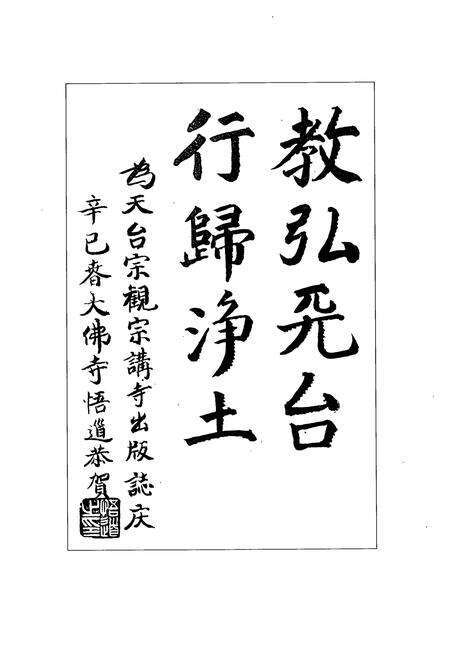 教弘天台
行歸浄土
為天台宗觀宗講寺出版誌庆
辛巳春大佛寺悟道恭賀
悟道之印